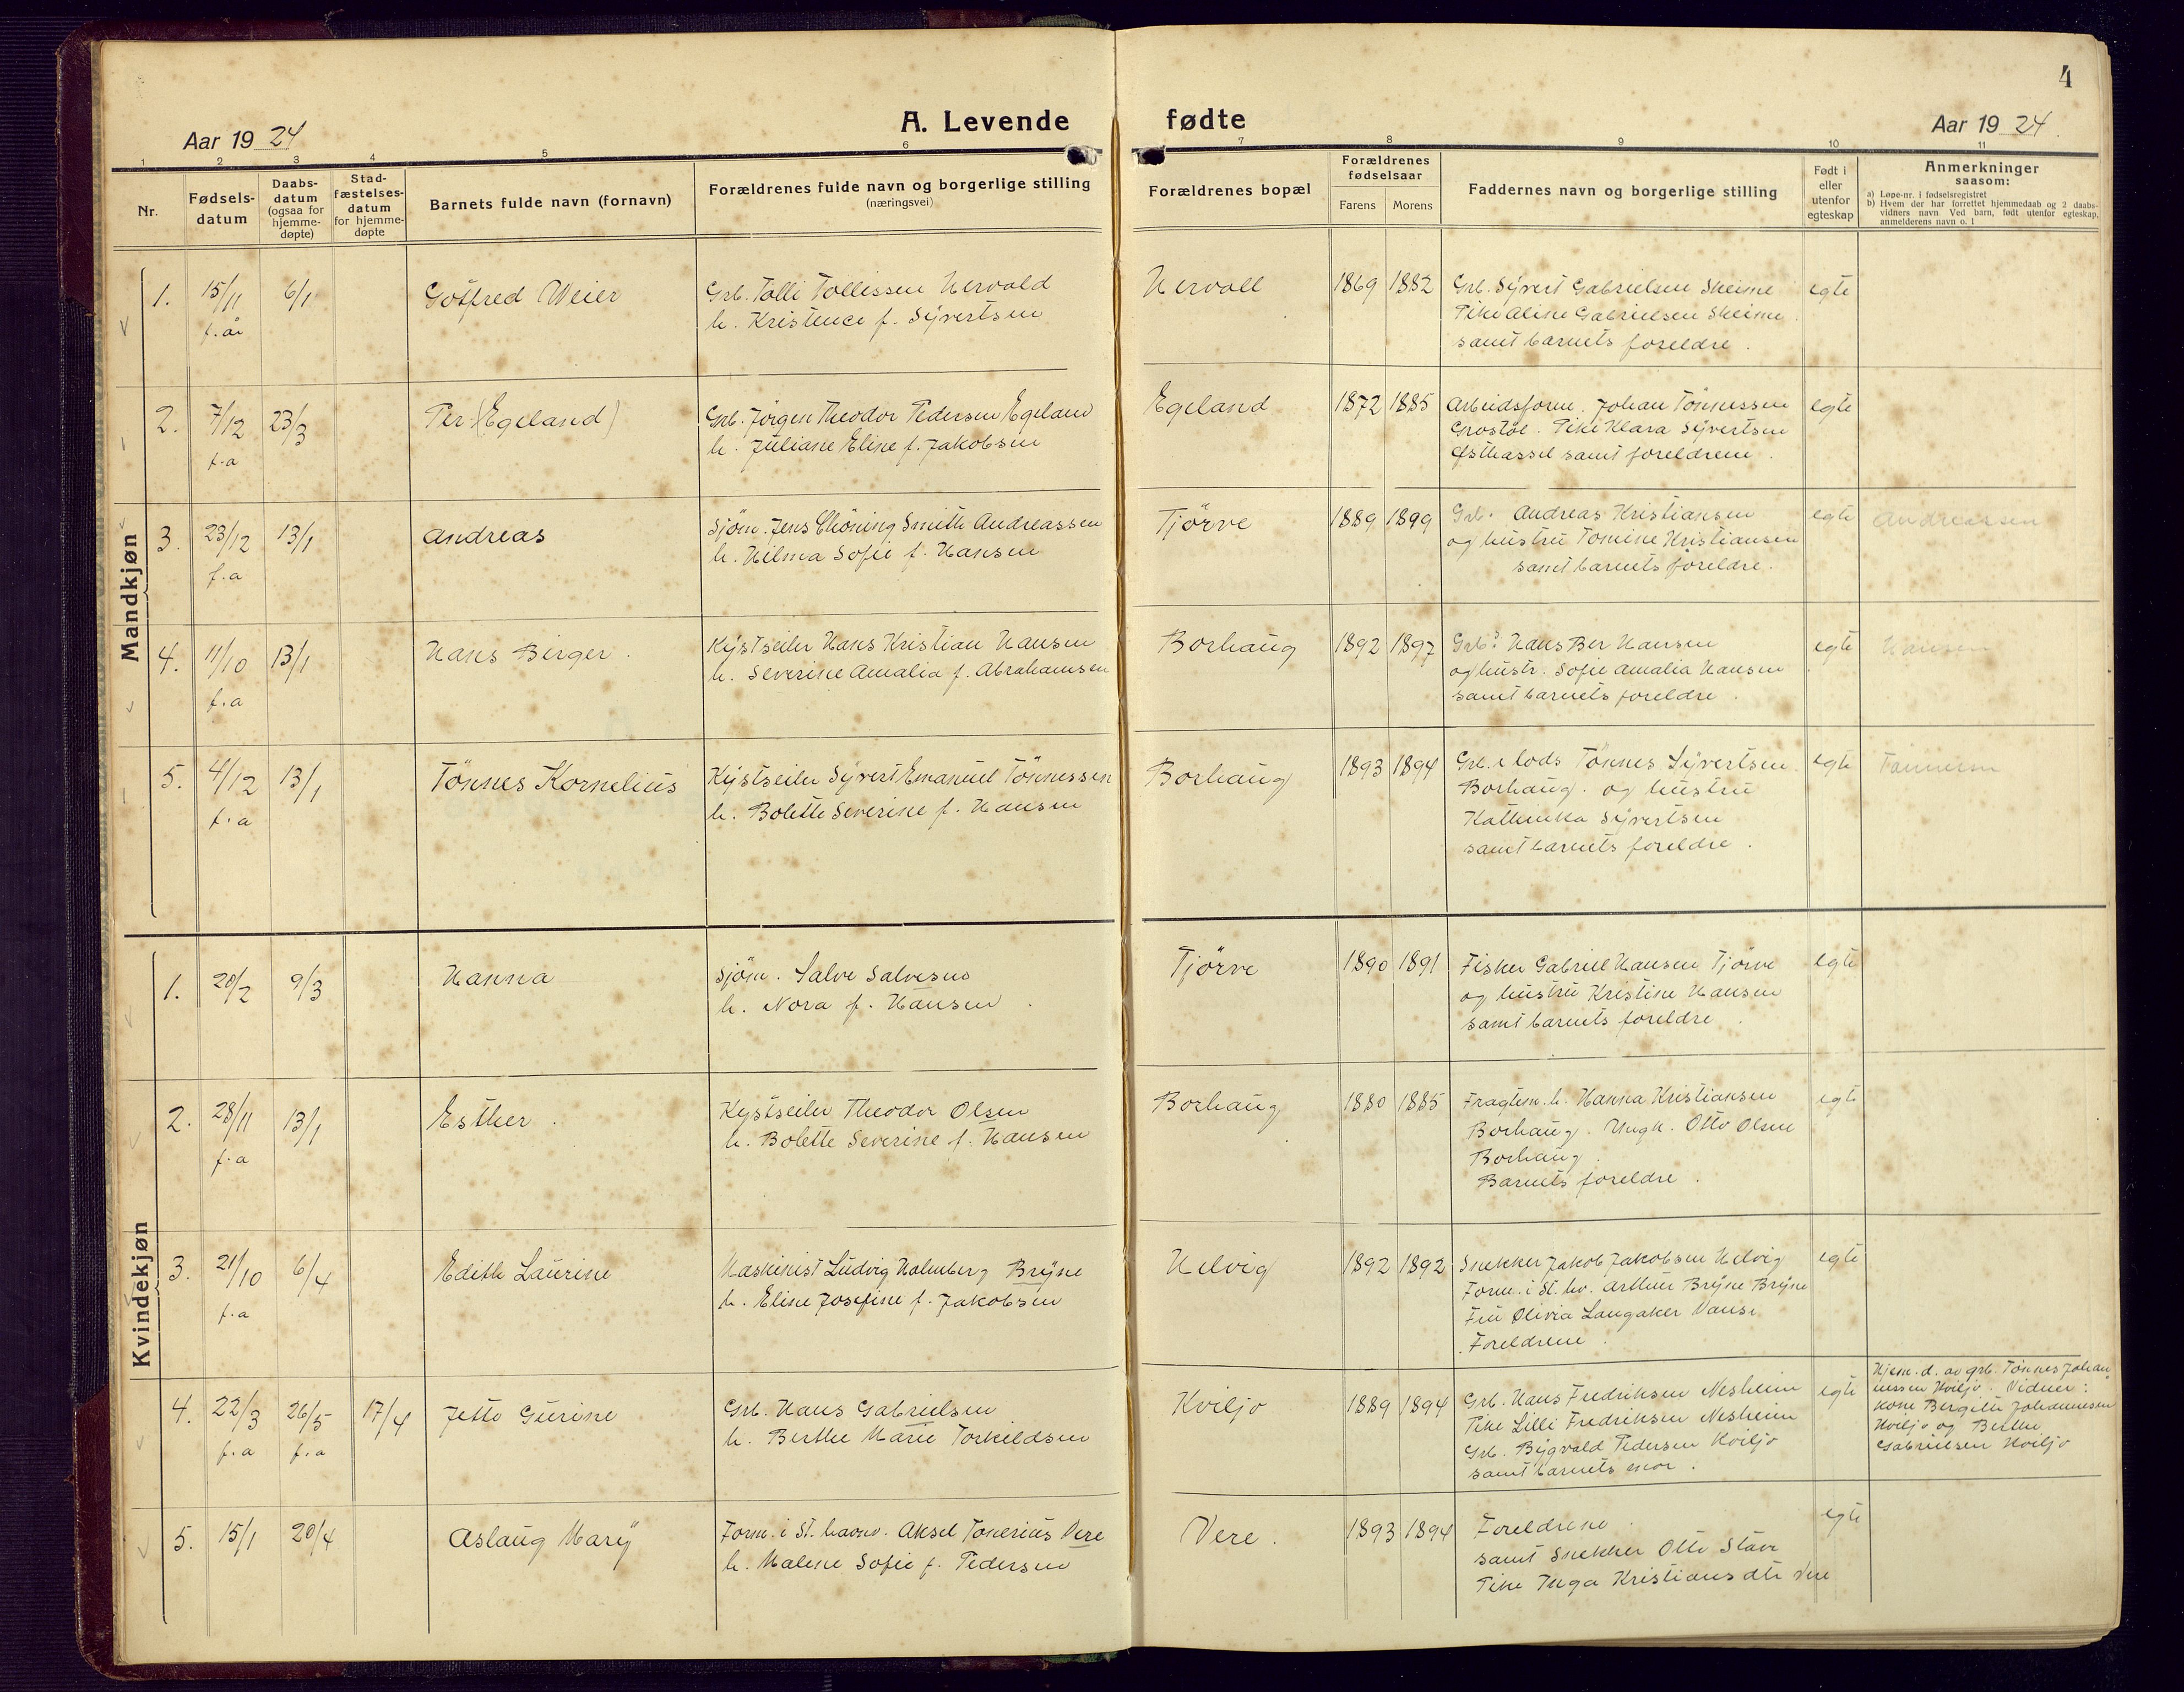 4
A. Levende fødte
Aar 19 24
Aar 19 24.
1 2 3 4 5 6 7 8 9 10 11
Nr.
Fødsels-
datum
Daabs-
datum
(ogsaa for
hjemme-
døpte)
Stad-
fæstelses-
datum
for hjemme-
døpte
Barnets fulde navn (fornavn)
Forældrenes fulde navn og borgerlige stilling
(næringsvei)
Forældrenes bopæl
Forældrenes
fødselsaar
Farens Morens
Faddernes navn og borgerlige stilling
Født i
eller
utenfor
egteskap
Anmerkninger
saasom:
a) Løpe-nr. i fødselsregistret
b) Hvem der har forrettet hjemmedaab og 2 daabs-
vidners navn Ved barn, født utenfor egteskap,
anmelderens navn o. l
Mandkjøn
1. 15/11 6/1 Gotfred Weier Grb. Tolli Tollissen Hervold Hervoll 1869 1882 Grb. Syvert Gabrielsen Skeime egte
f. år h. Kristence f. Syvertsen Pike Aline Gabrielsen Skeime
samt barnets foreldre.
2. 7/12 23/3 Per (Egeland) Grb. Jørgen Theodor Pedersen Egeland Egeland 1872 1885 Arbeidsform. Johan Tönnessen egte
f.a h. Juliane Eline f. Jakobsen Grostøl. Pike Klara Syvertsen
Østhassel samt foreldrene.
3. 23/12 13/1 Andreas Sjöm. Jens Chöning Smith Andreassen Tjörve 1889 1899 Grb. Andreas Kristiansen egte Andreassen
f.a h. Hilma Sofie f. Hansen og hustru Tomine Kristiansen
samt barnets foreldre.
4. 11/10 13/1 Hans Birger. Kystseiler Hans Kristian Hansen Borhaug 1892 1897 Grb. Hans Ber Hansen egte Hansen
f.a h. Severine Amalia f. Abrahamsen og hustr. Sofie Amalia Hansen
samt barnets foreldre.
5. 4/12 13/1 Tönnes Kornelius Kystseiler Syvert Emanuel Tönnessen Borhaug 1893 1894 Grb. & lods Tönnes Syvertsen egte
f.a h. Bolette Severine f. Hansen Borhaug. og hustru
Kathinka Syvertsen
samt barnets foreldre.
Kvindekjøn
1. 20/2 9/3 Hanna Sjöm. Salve Salvesen Tjörve 1890 1891 Fisker Gabriel Hansen Tjörve egte
h. Nora f. Hansen. og hustru Kristine Hansen
samt barnets foreldre.
2. 28/11 13/1 Esther. Kystseiler Theodor Olsen Borhaug 1880 1885 Fragtem. h. Hanna Kristiansen egte
f.a h. Bolette Severine f. Hansen Borhaug. Ungk. Otto Olsen
Borhaug.
Barnets foreldre.
3. 21/10 6/4 Edith Laurine Maskinist Ludvig Holmberg Bryne Helvig 1892 1892 Snekker Jakob Jakobsen Helvig egte
f.a h. Eline Josefine f. Jakobsen Form. i St. hv. Arthur Bryne Bryne
Fru Olivia Langaker Vanse
Foreldrene.
4. 22/3 26/5 17/4 Jette Gurine Grb. Hans Gabrielsen Kviljo 1889 1894 Grb. Hans Fredriksen Nesheim egte Hjem. d. av grb. Tönnes Johan-
f.a f.a h. Berthe Marie Torkildsen Pike Lilli Fredriksen Nesheim nessen Kviljo. Vidner:
Grb. Bygvald Pedersen Kviljo kone Johannesen
samt barnets mor. Kviljo og Berthe
Gabrielsen Kviljo
5. 15/1 20/4 Aslaug Mary Form. i St. havnv. Aksel Tonerius Vere Vere. 1893 1894 Foreldrene. egte
h. Malene Sofie f. Pedersen samt snekker Otto Stave
Pike Inga Kristiansdtr Vere